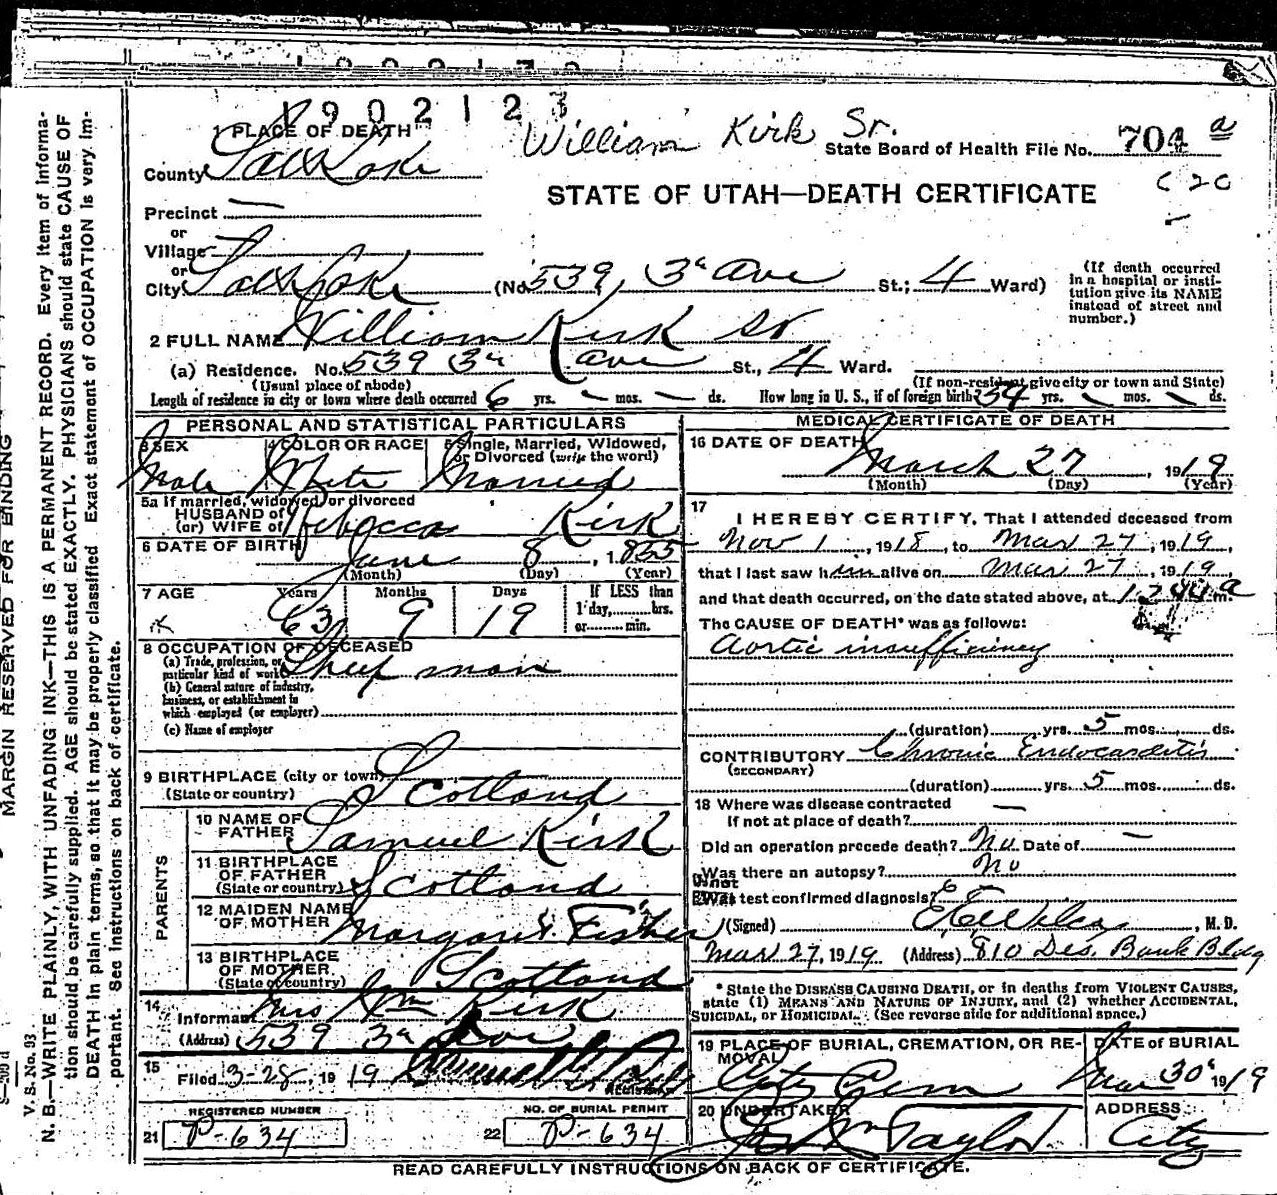 1902123
William Kirk Sr.
State Board of Health File No. 704 a
C 20
1 PLACE OF DEATH
County Salt Lake
STATE OF UTAH—DEATH CERTIFICATE
Precinct —
or
Village
or
City Salt Lake (No. 539, 3d ave St.; 4 Ward)
(If death occurred in a hospital or institution give its NAME instead of street and number.)
2 FULL NAME William Kirk Sr
(a) Residence. No. 539 3d ave St., 4 Ward.
(Usual place of abode) (If non-resident give city or town and State)
Length of residence in city or town where death occurred 6 yrs. — mos. — ds. How long in U. S., if of foreign birth? 54 yrs. — mos. — ds.
PERSONAL AND STATISTICAL PARTICULARS
3 SEX 4 COLOR OR RACE 5 Single, Married, Widowed, or Divorced (write the word)
Male White Married
5a If married, widowed, or divorced
HUSBAND of
(or) WIFE of Rebecca Kirk
6 DATE OF BIRTH June 8, 1855
(Month) (Day) (Year)
7 AGE Years Months Days If LESS than
63 9 19 1 day, hrs.
or min.
8 OCCUPATION OF DECEASED
(a) Trade, profession, or particular kind of work Sheep man
(b) General nature of industry, business, or establishment in which employed (or employer)
(c) Name of employer
9 BIRTHPLACE (city or town)
(State or country) Scotland
PARENTS
10 NAME OF FATHER Samuel Kirk
11 BIRTHPLACE OF FATHER
(State or country) Scotland
12 MAIDEN NAME OF MOTHER Margaret Fisher
13 BIRTHPLACE OF MOTHER
(State or country) Scotland
14 Informant Mrs Wm Kirk
(Address) 539 3d Ave
15 Filed 3-28, 1919
REGISTRAR
REGISTERED NUMBER
21 P-634
NO. OF BURIAL PERMIT
22 P-634
MEDICAL CERTIFICATE OF DEATH
16 DATE OF DEATH March 27, 1919
(Month) (Day) (Year)
17 I HEREBY CERTIFY, That I attended deceased from
Nov 1, 1918, to Mar 27, 1919,
that I last saw him alive on Mar 27, 1919,
and that death occurred, on the date stated above, at 12 a m.
The CAUSE OF DEATH* was as follows:
Aortic insufficiency
(duration) yrs. 5 mos. ds.
CONTRIBUTORY Chronic Endocarditis
(SECONDARY)
(duration) yrs. 5 mos. ds.
18 Where was disease contracted
if not at place of death? —
Did an operation precede death? No Date of —
Was there an autopsy? No
What test confirmed diagnosis?
(Signed) , M. D.
Mar 27, 1919 (Address) 810 Des. Bank Bldg
* State the DISEASE CAUSING DEATH, or in deaths from VIOLENT CAUSES,
state (1) MEANS AND NATURE OF INJURY, and (2) whether ACCIDENTAL,
SUICIDAL, or HOMICIDAL. (See reverse side for additional space.)
19 PLACE OF BURIAL, CREMATION, OR REMOVAL DATE OF BURIAL
City Cem Mar 30, 1919
20 UNDERTAKER ADDRESS
Jos Wm Taylor City
READ CAREFULLY INSTRUCTIONS ON BACK OF CERTIFICATE.
MARGIN RESERVED FOR BINDING
V. S. No. 93
N. B.—WRITE PLAINLY, WITH UNFADING INK—THIS IS A PERMANENT RECORD. Every item of informa-
tion should be carefully supplied. AGE should be stated EXACTLY. PHYSICIANS should state CAUSE OF
DEATH in plain terms, so that it may be properly classified. Exact statement of OCCUPATION is very im-
portant. See instructions on back of certificate.